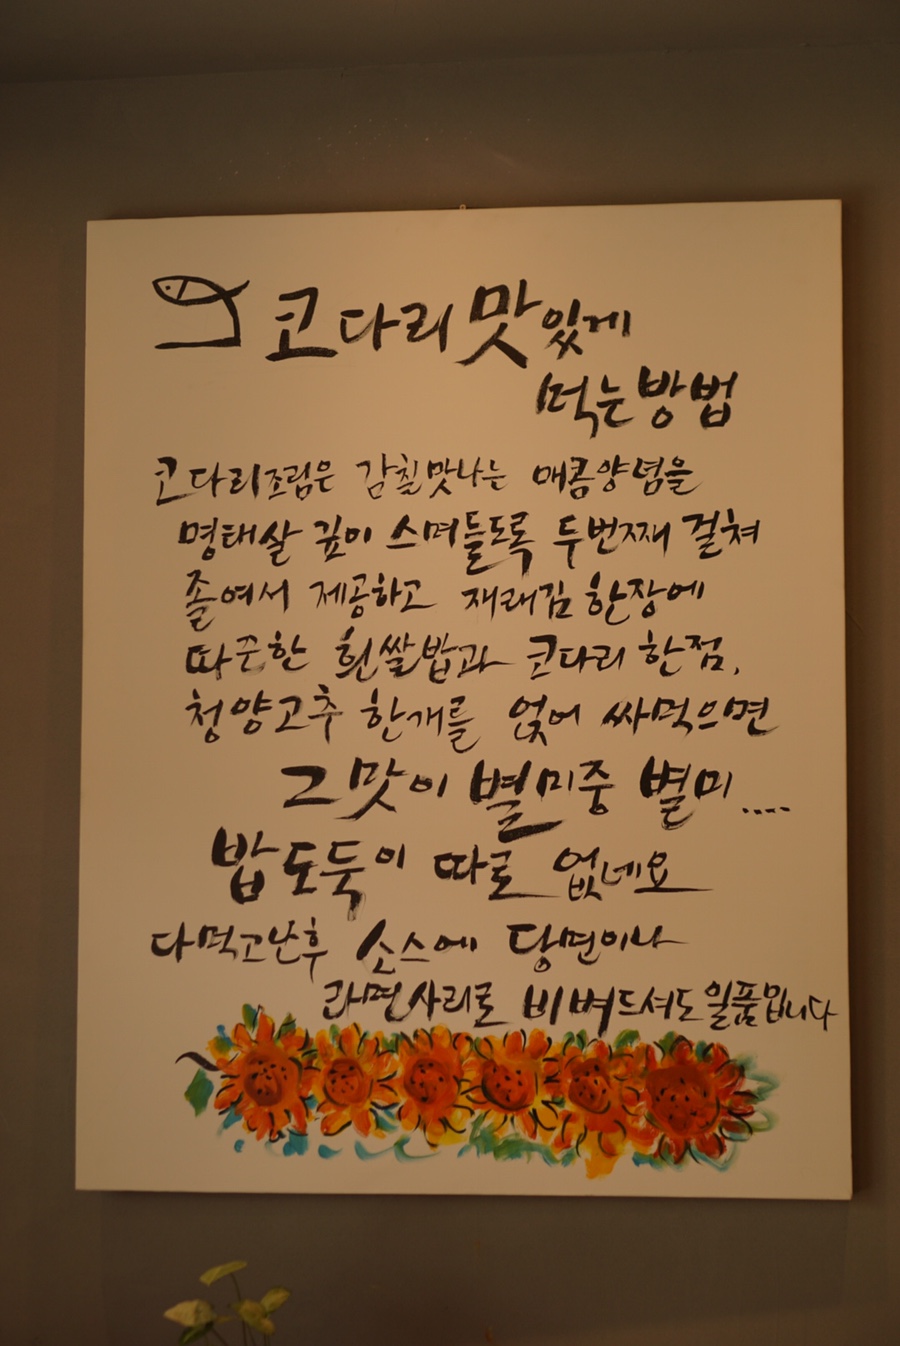 코다리 맛있게
먹는 방법
코다리조림은 감칠맛나는 매콤양념을
명태살 깊이 스며들도록 두번째 걸쳐
졸여서 제공하고 재래김 한장에
따끈한 흰쌀밥과 코다리 한점,
청양고추 한개를 얹어 싸먹으면
그맛이 별미중 별미....
밥도둑이 따로 없네요
다먹고난후 소스에 당면이나
라면사리로 비벼드셔도 일품입니다